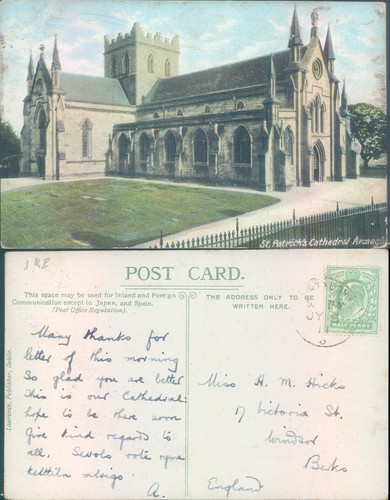 St. Patrick's Cathedral Armagh
POST CARD.
This space may be used for Inland and Foreign
Communication except to Japan, and Spain.
(Post Office Regulation).
THE ADDRESS ONLY TO BE
WRITTEN HERE.
HALF PENNY
Lawrence, Publisher, Dublin.
Many thanks for
letter of this morning
So glad you are better
This is our Cathedral:
hope to be there soon
Give kind regards to
all.
A.
Miss H. M. Hicks
17 Victoria St.
Windsor
Berks
England